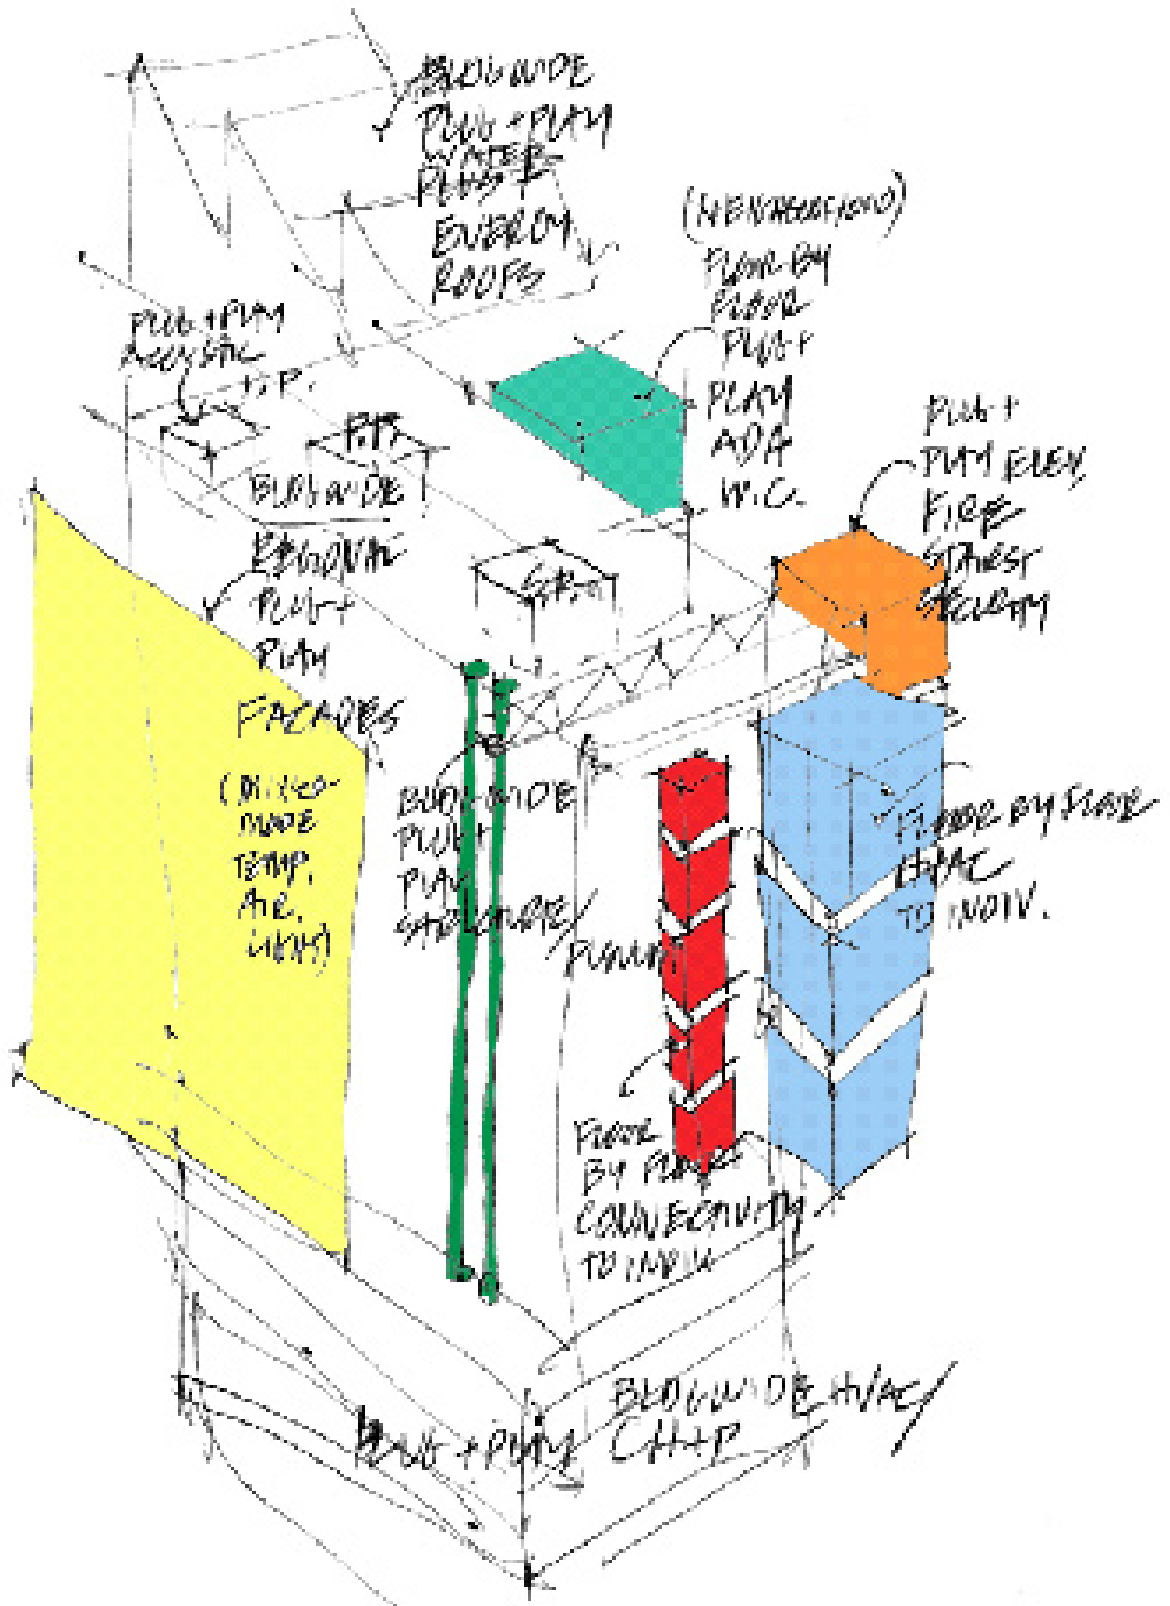 BLDGWIDE
PLUG + PLAY
WATER
PLUS +
ENERGY
ROOFS
FLOOR BY
FLOOR
PLUG +
PLAY
ADA
W.C.
PLUG + PLAY
ACOUSTIC
BLDGWIDE
REGIONAL
PLUG +
PLAY
FACADES
(MIXED
MODE
TEMP,
AIR,
LIGHTS)
PLUG +
PLAY ELEV,
FIRE
STAIRS +
SECURITY
BLDGWIDE
PLUG +
PLAY
STRUCTURE/
PLENUM
FLOOR BY FLOOR
HVAC
TO INDIV.
FLOOR
BY FLOOR
CONNECTIVITY
TO INDIV.
PLUG + PLAY
BLDGWIDE HVAC/
CHP